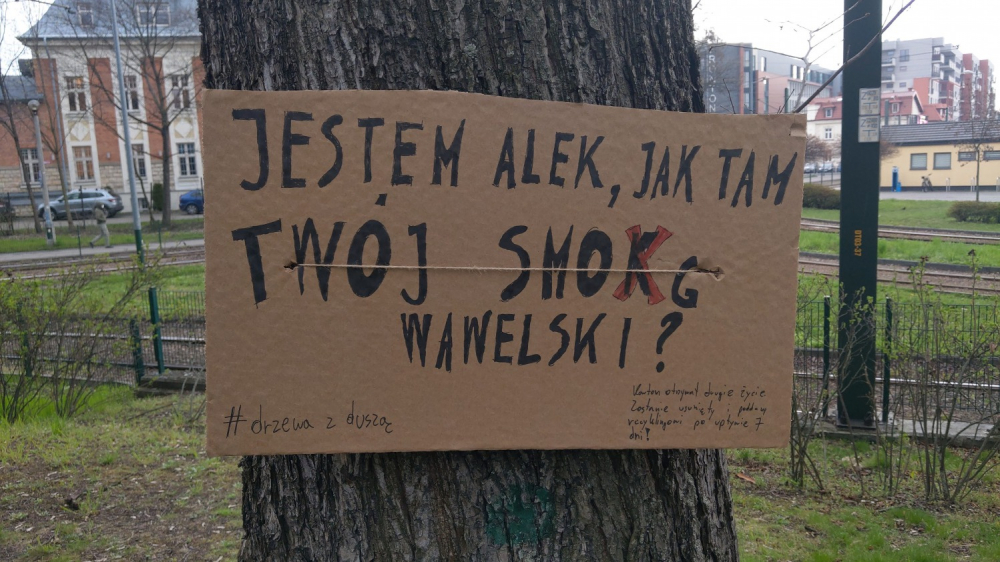 JESTEM ALEK, JAK TAM
TWÓJ SMOKG
WAWELSKI?
#drzewa z duszą
Karton otrzymał drugie życie
Zostanie usunięty i poddany
recyklingowi po upływie 7
dni!